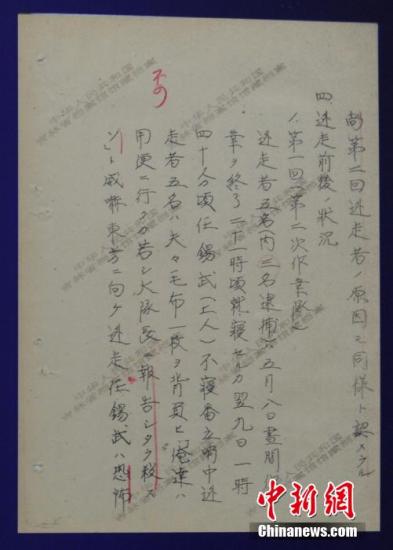 尚第二回逃走者ノ原因モ同様ト認メラル
四、逃走前後ノ状況
1、第一回(第二次作業隊)
逃走者五名(内三名逮捕)ハ五月八日昼間作
業ヲ終了二十一時頃就寝セルカ翌九日一時
四十分頃任錫武(工人)不寝番立哨中逃
走者五名ハ夫々毛布一枚ヲ背負ヒ「俺達ハ
用便ニ行クカ若シ大隊長ニ報告シタラ殺ス
ゾ」ト威嚇東方ニ向ケ逃走任錫武ハ恐怖
中华人民共和国
吉林省档案馆馆藏档案
中新网
Chinanews.com